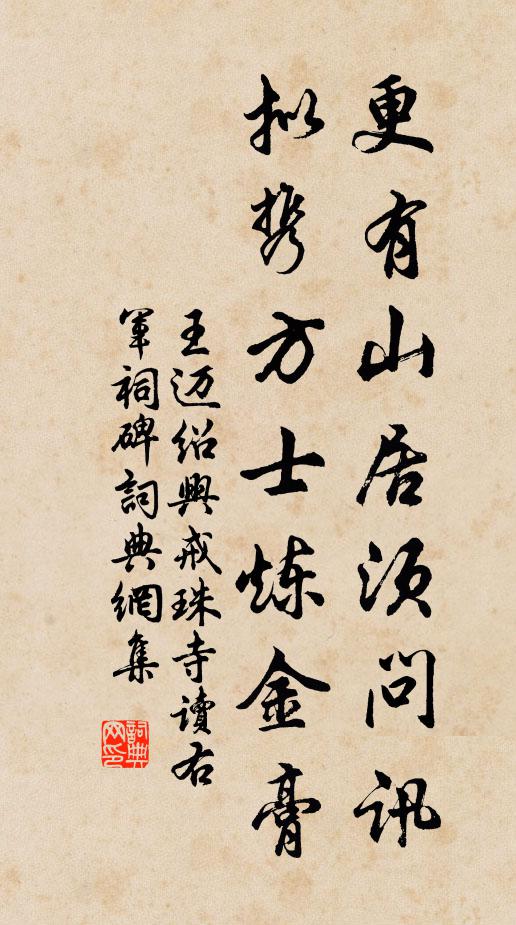 更有山居须问讯
拟携方士炼金膏
王迈绍興戒珠寺讀右
軍祠碑詞典網集
詞典
网印